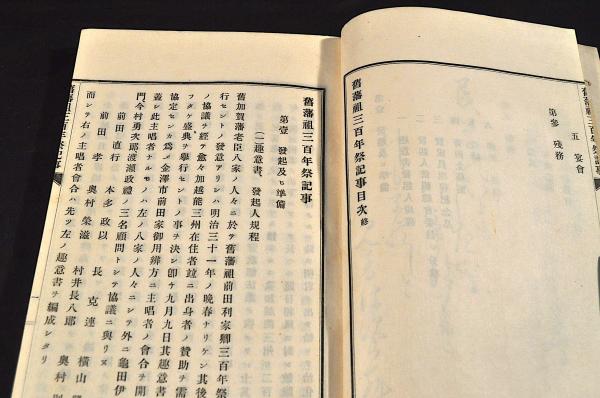 五 宴會
第參 殘務
舊藩祖三百年祭記事目次 終
舊藩祖三百年祭記事
舊藩祖三百年祭記事
第壹 發起及ヒ準備
(一)趣意書、發起人規程
舊加賀藩老臣八家ノ人々ニ於テ舊藩祖前田利家卿三百年祭
行セントノ發意アリシハ明治三十一年ノ晩春ナリケン其後
ノ協議ヲ經テ愈々加越能三州在住者竝ニ出身者ノ贊助ヲ需
フタケ盛典ヲ擧行セントノ事ヲ決シ卽ケ九月九日其趣意書
協定センカ爲メ金澤市前田家御用辨方ニ主唱者ノ會合ヲ開
蓋シ此主唱者ナルモノハ左ノ八家ノ人々ニシテ外ニ龜田伊
門今村勇次郎渡瀨政禮ノ三名顧問トシテ協議ニ與リヌ
前田直行 本多政以 長克連 橫山
前田孝 奧村榮滋 村井長八郎 奧村
而シテ右ノ主唱者會合ハ先ツ左ノ趣意書ヲ編成シタリ
舊藩祖三百年祭記事
一